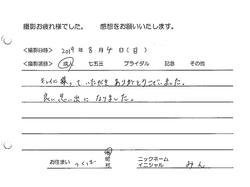 撮影お疲れ様でした。　感想をお願いいたします。
＜撮影日時＞ 2019 年 8 月 4 日 ( 日 )
＜撮影項目＞ 成人　七五三　ブライダル　記念　その他
きれいに撮っていただきありがとうございました。
良い思い出になりました。
お住まい つくば 市 町 村　ニックネーム イニシャル みん